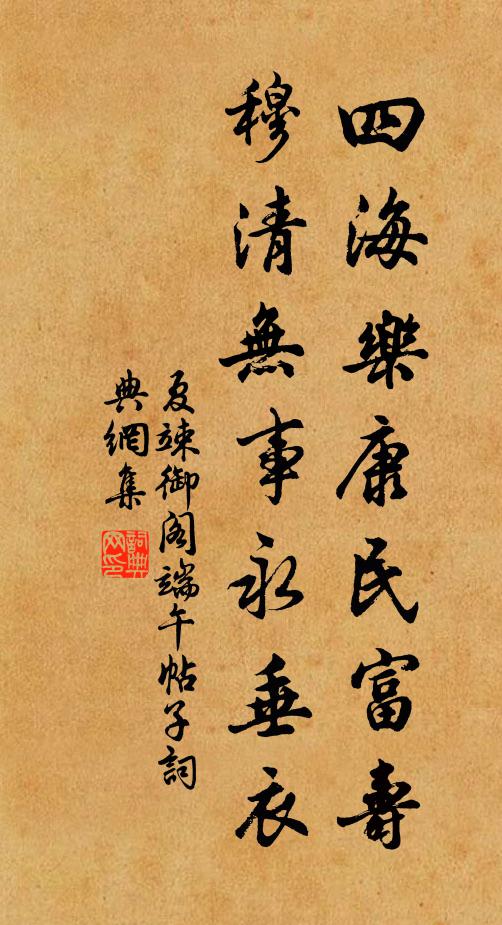 四海樂康民富壽
穆清無事永垂衣
夏竦御閣端午帖子詞
典網集
詞典网印